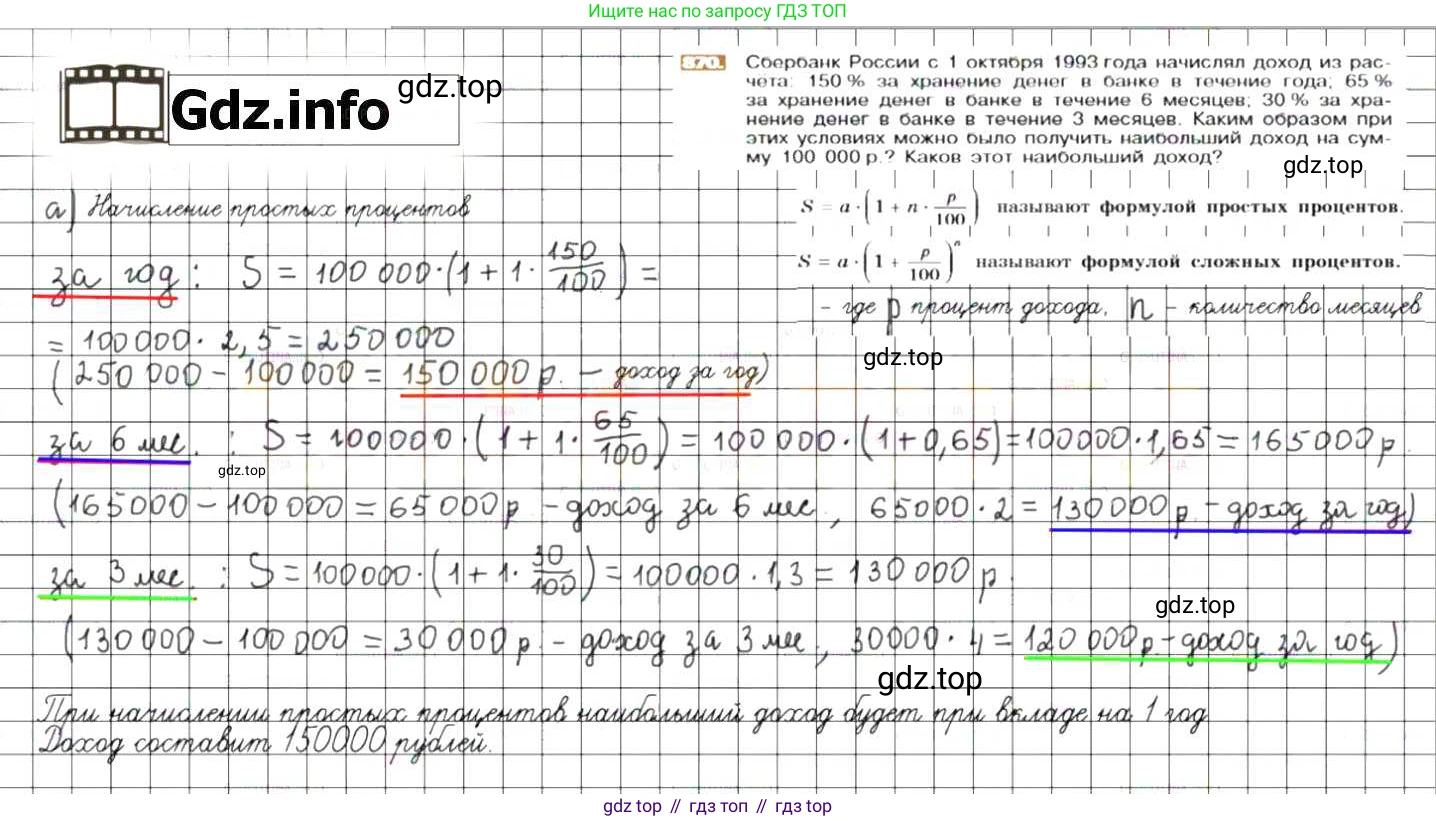 Ищите нас по запросу ГДЗ ТОП
Gdz.info
gdz.top
870. Сбербанк России с 1 октября 1993 года начислял доход из рас-
чёта: 150 % за хранение денег в банке в течение года; 65 %
за хранение денег в банке в течение 6 месяцев; 30 % за хра-
нение денег в банке в течение 3 месяцев. Каким образом при
этих условиях можно было получить наибольший доход на сум-
му 100 000 р.? Каков этот наибольший доход?
gdz.top
а) Начисление простых процентов
S = a · (1 + n · p/100) называют формулой простых процентов.
S = a · (1 + p/100)^n называют формулой сложных процентов.
- где p процент дохода, n - количество месяцев
за год: S = 100 000 · (1 + 1 · 150/100) =
= 100000 · 2,5 = 250 000
gdz.top
(250 000 - 100 000 = 150 000 р. - доход за год)
за 6 мес. : S = 100000 · (1 + 1 · 65/100) = 100 000 · (1+0,65) = 100000 · 1,65 = 165000 р.
gdz.top
(165000 - 100 000 = 65 000 р - доход за 6 мес, 65000 · 2 = 130000 р. - доход за год)
за 3 мес. : S = 100000 · (1 + 1 · 30/100) = 100000 · 1,3 = 130 000 р.
gdz.top
(130 000 - 100 000 = 30 000 р. - доход за 3 мес, 30000 · 4 = 120 000 р. - доход за год)
gdz.top
При начислении простых процентов наибольший доход будет при вкладе на 1 год
Доход составит 150000 рублей.
gdz top // гдз топ // gdz top